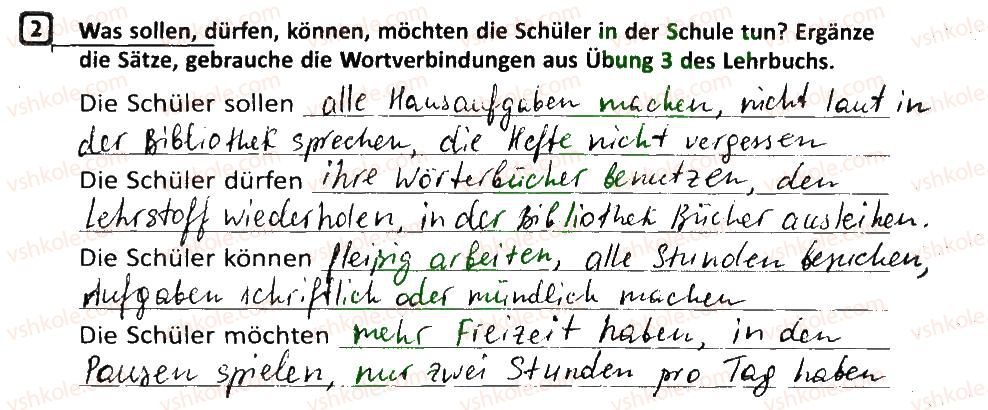 2 Was sollen, dürfen, können, möchten die Schüler in der Schule tun? Ergänze
die Sätze, gebrauche die Wortverbindungen aus Übung 3 des Lehrbuchs.
Die Schüler sollen alle Hausaufgaben machen, nicht laut in
der Bibliothek sprechen, die Hefte nicht vergessen
Die Schüler dürfen ihre Wörterbücher benutzen, den
Lehrstoff wiederholen, in der Bibliothek Bücher ausleihen.
Die Schüler können fleißig arbeiten, alle Stunden besuchen,
Aufgaben schriftlich oder mündlich machen
Die Schüler möchten mehr Freizeit haben, in den
Pausen spielen, nur zwei Stunden pro Tag haben